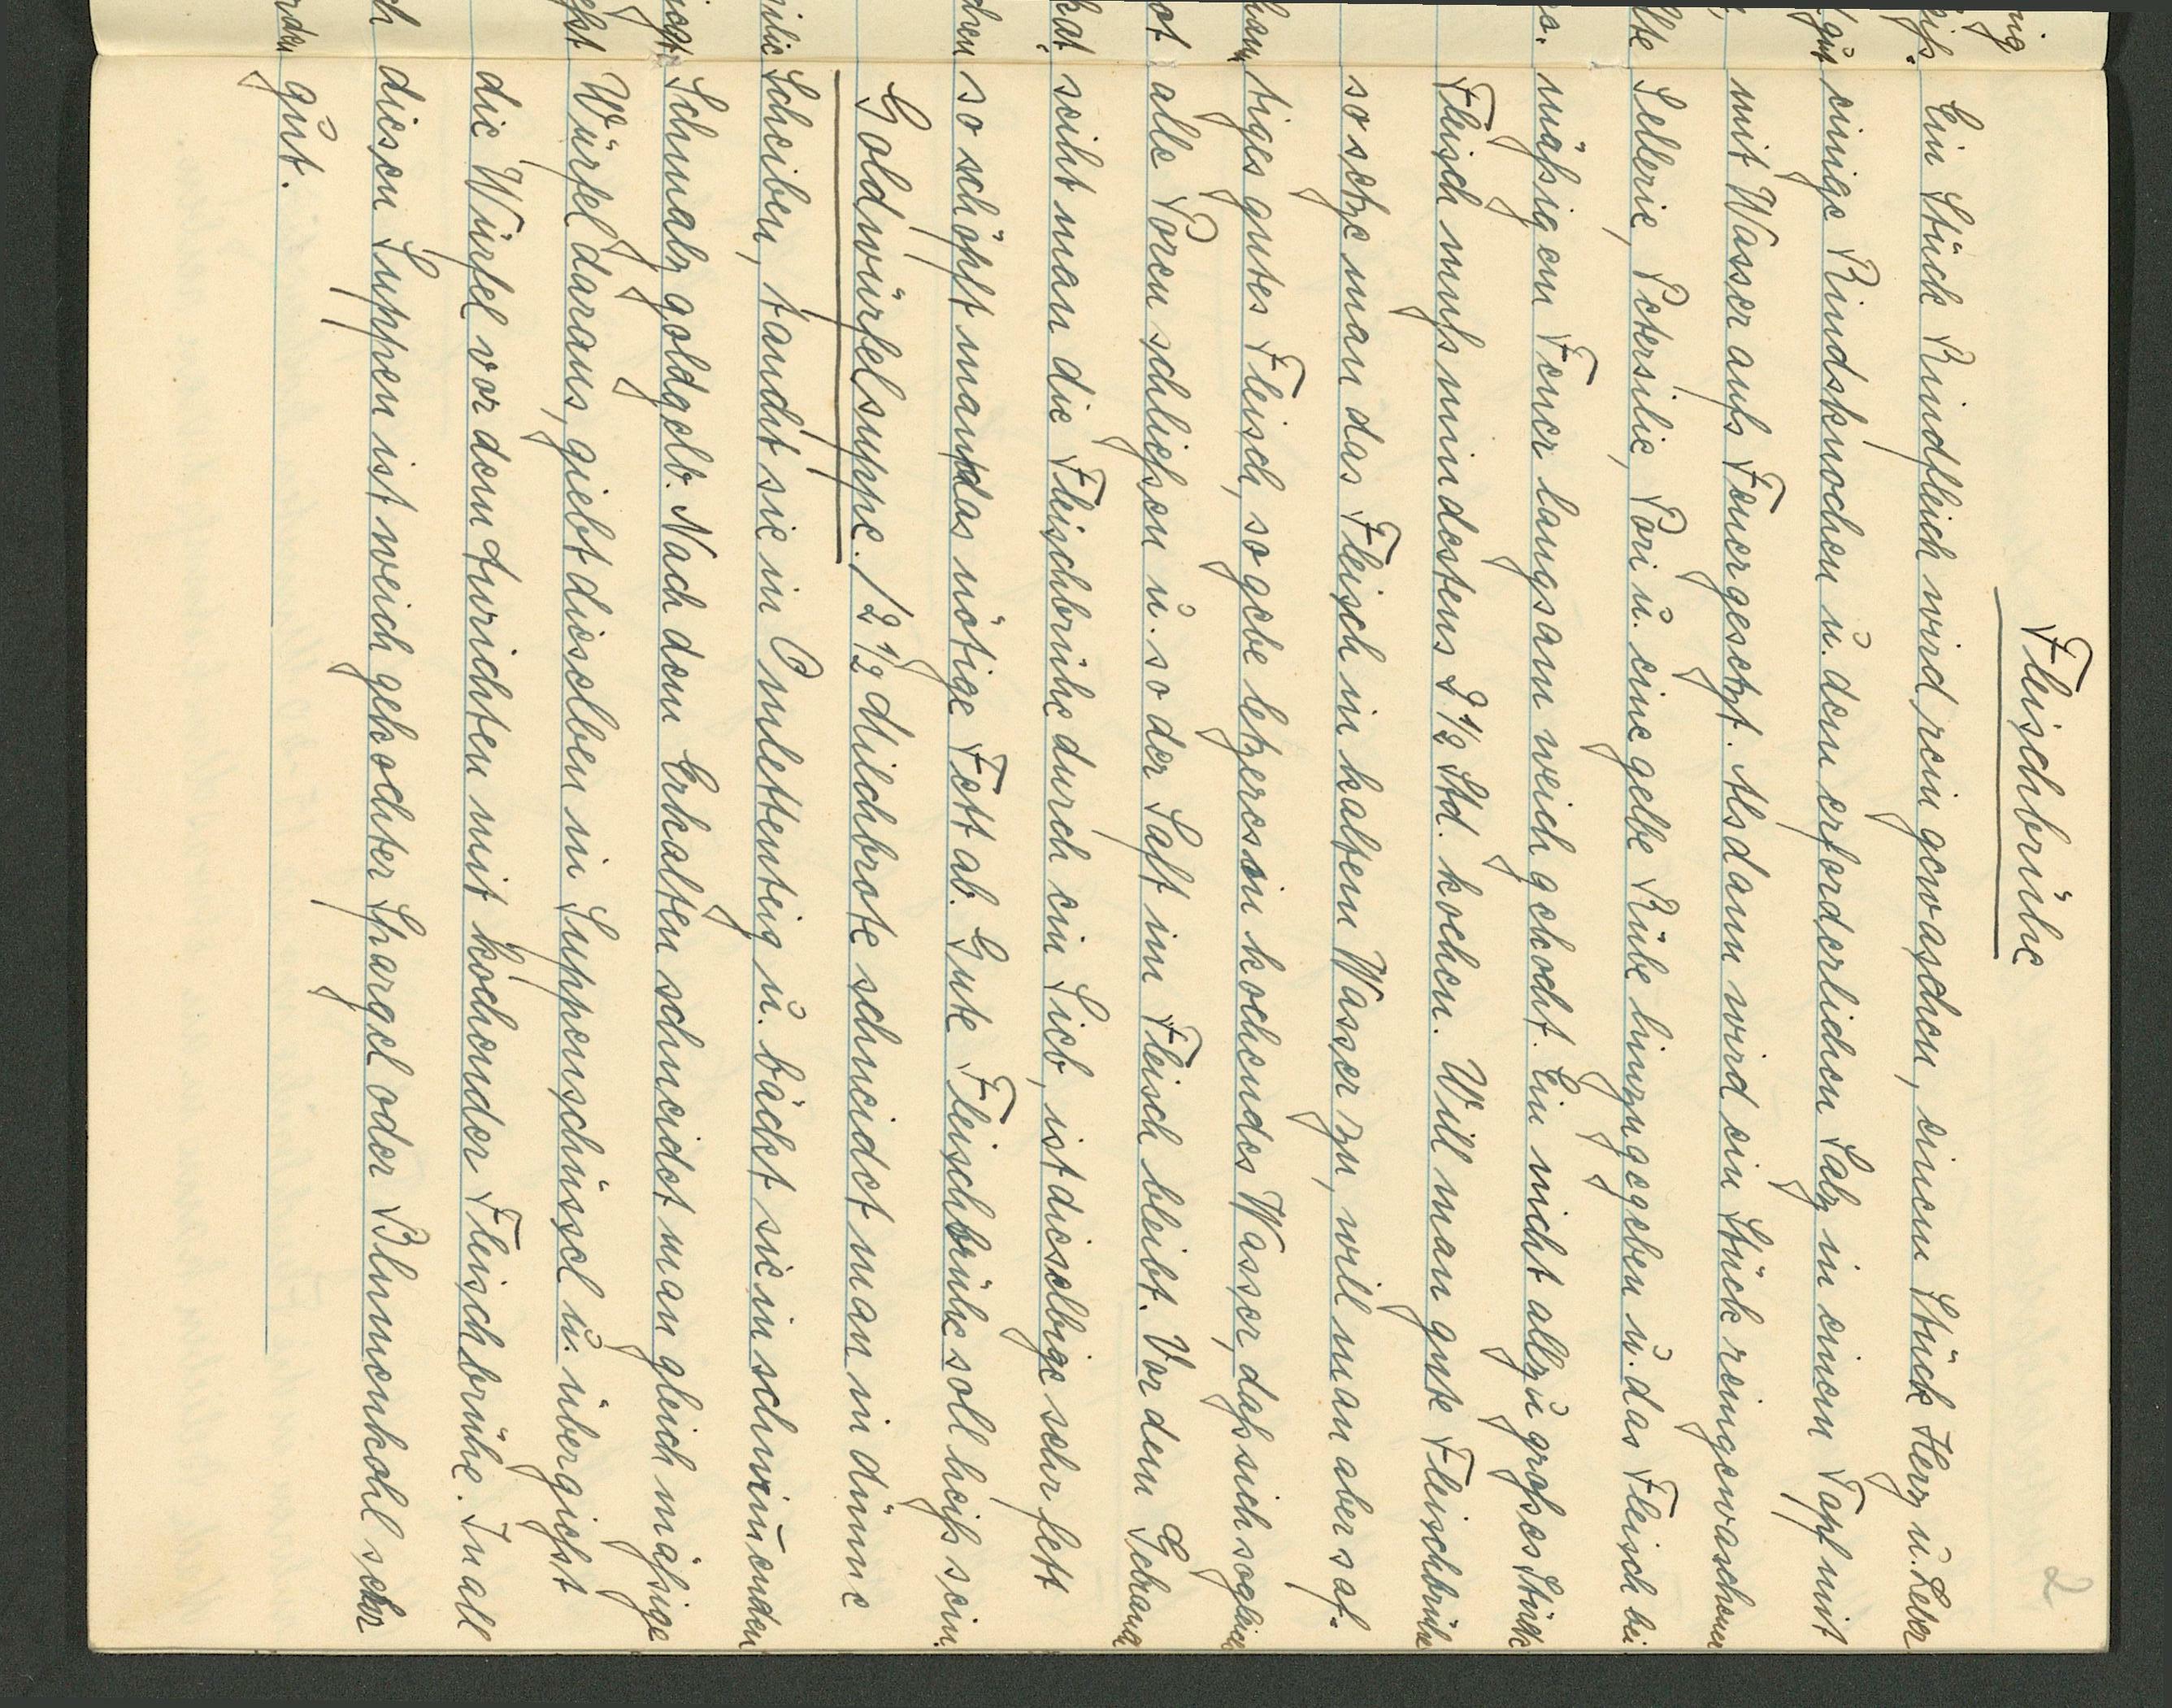 2
Fleischbrühe
Ein Stück Rindfleich wird rein gewaschen, einem Stück Herz u. Leber
einige Rindsknochen u. dem erforderlichen Salz in einem Topf mit
mit Wasser aufs Feuer gesetzt. Alsdann wird ein Stück reingewaschener
Sellerie, Petersilie, Pori u. eine gelbe Rübe hinzugegeben u. das Fleisch bei
mäßigem Feuer langsam weich gekocht. Ein nicht allzu großes Stück
Fleisch muß mindestens 2 1/2 Std. kochen. Will man gute Fleischbrühe
so setze man das Fleisch in kaltem Wasser zu, will man aber saf-
tiges gutes Fleisch, so gebe letzeres in kochendes Wasser, daß sich sogleich
alle Poren schließen u. so der Saft im Fleisch bleibt. Vor dem Gebrauch
seiht man die Fleischbrühe durch ein Sieb, ist dieselbige sehr fett
so schöpft man das nötige Fett ab. Gute Fleischbrühe soll heiß sein.
Goldwürfelsuppe. / 2 1/2 Milchbrote schneidet man in dünne
Scheiben, taucht sie in Omlettenteig u. bäckt sie in schwim̅enden
Schmalz goldgelb. Nach dem Erkalten schneidet man gleich mäßige
Würfel daraus, giebt dieselben in Suppenschüssel u. übergießt
die Würfel vor dem Anrichten mit kochender Fleischbrühe. In all
diesen Suppen ist weich gekochter Spargel oder Blumenkohl sehr
gut.